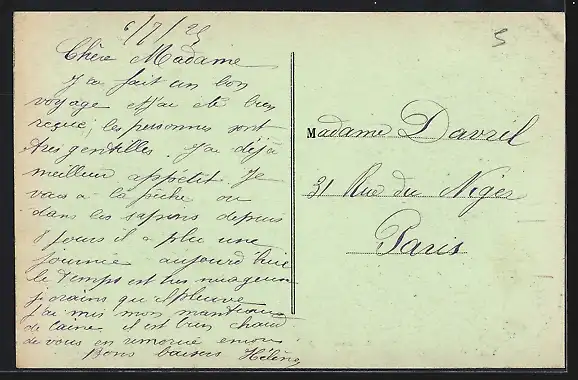 6/7/25
Chère Madame
J'ai fait un bon
voyage et j'ai été bien
reçue, les personnes sont
très gentilles. J'ai déjà
meilleur appétit. Je
vais à la pêche ou
dans les sapins depuis
8 jours il a plu une
journée aujourd'hui
le temps est très nuageux
je crains qu'il pleuve
J'ai mis mon manteau
de laine il est bien chaud
je vous en remercie encore
Bons baisers Hélène
5
Madame Davril
31 Rue du Niger
Paris